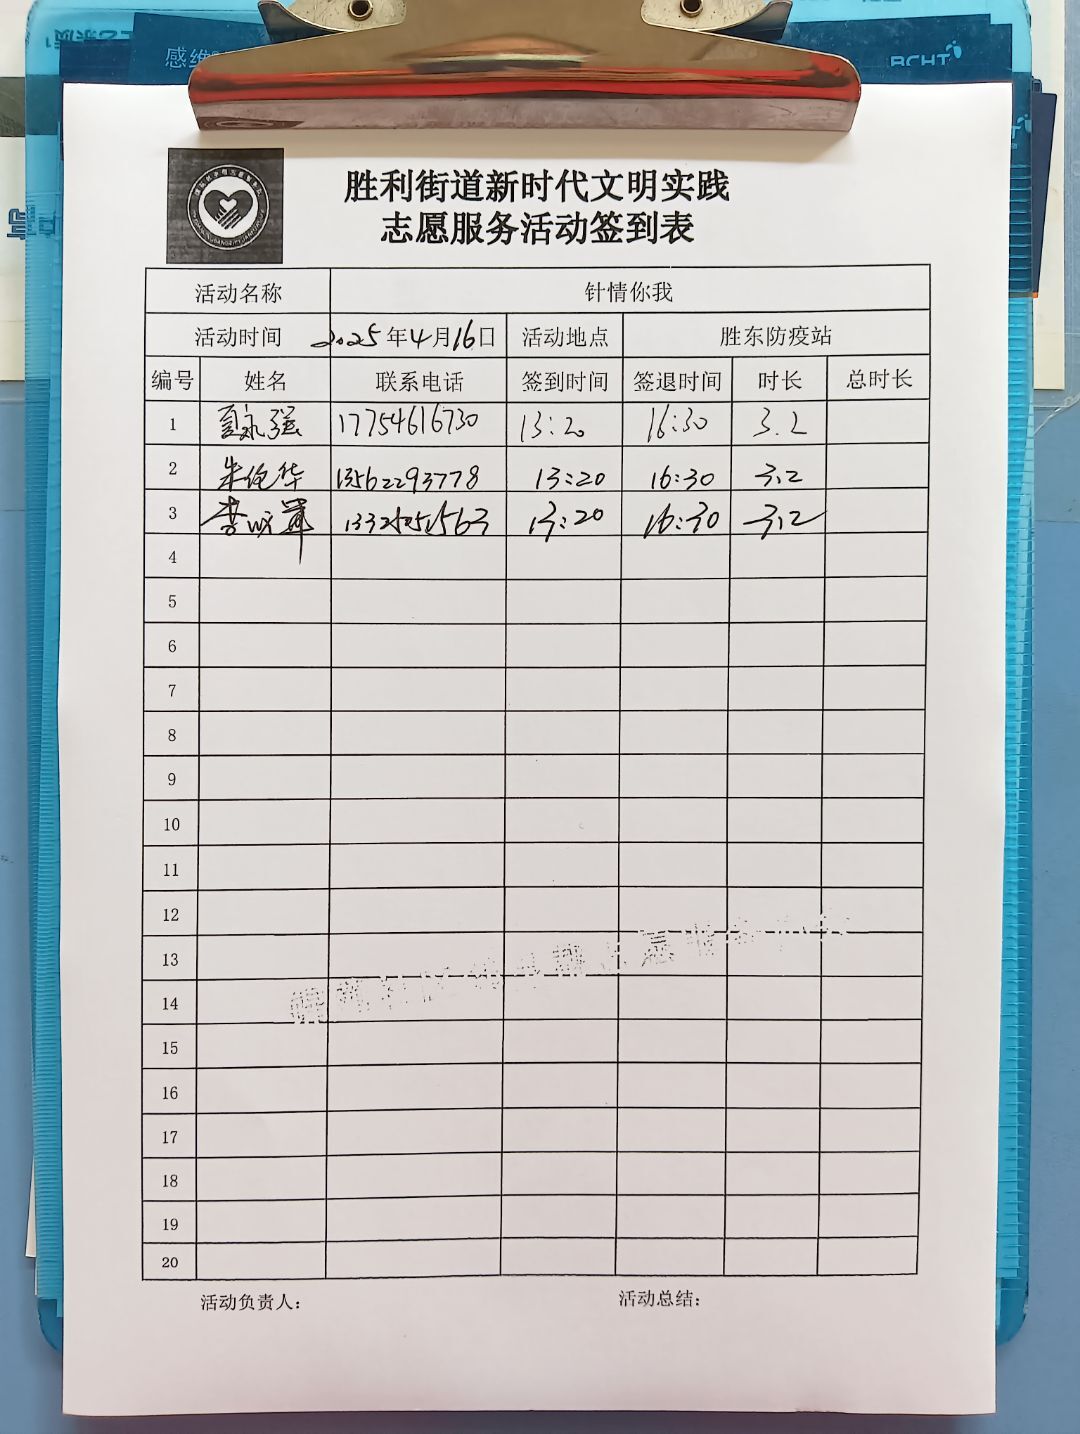 感维
BCHT
胜利街道新时代文明实践
志愿服务活动签到表
活动名称 针情你我
活动时间 2025年4月16日 活动地点 胜东防疫站
编号 姓名 联系电话 签到时间 签退时间 时长 总时长
1 夏永强 17754616730 13:20 16:30 3.2
2 朱伦华 13562293778 13:20 16:30 3.2
3 李 13:20 16:30 3.2
4
5
6
7
8
9
10
11
12
13
14
15
16
17
18
19
20
活动负责人: 活动总结: